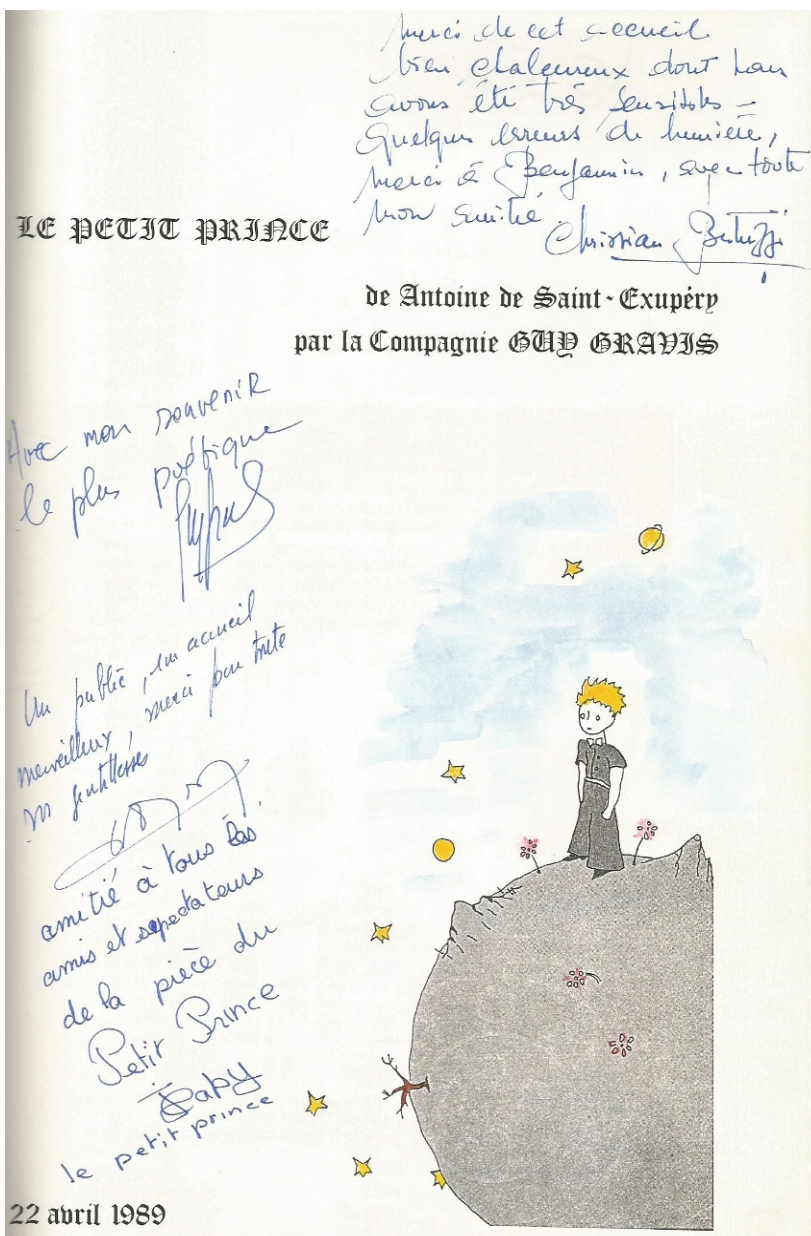 merci de cet accueil
bien chaleureux dont nous
avons été très sensibles –
Quelques erreurs de lumière,
merci à Benjamin, avec toute
mon amitié.
Christian
LE PETIT PRINCE
de Antoine de Saint-Exupéry
par la Compagnie GUY GRAVIS
Avec mon souvenir
le plus poétique
Un public, un accueil
merveilleux, merci pour toute
vos gentillesses
amitié à tous les
amis et
de la pièce du
Petit Prince
le petit prince
22 avril 1989